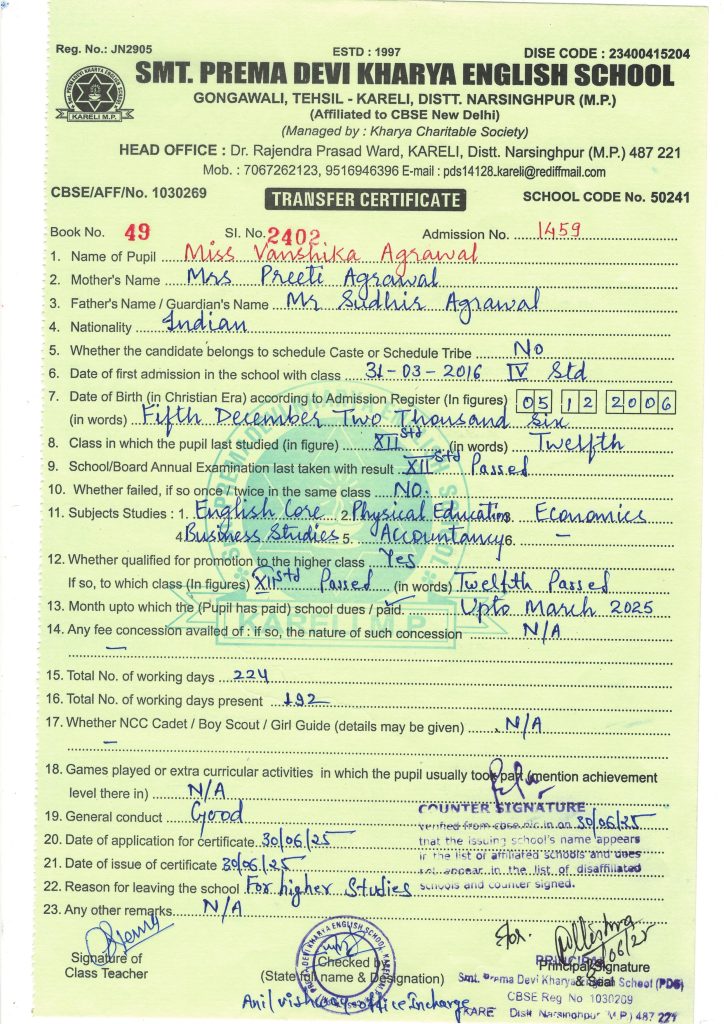 Reg. No.: JN2905 ESTD : 1997 DISE CODE : 23400415204
SMT. PREMA DEVI KHARYA ENGLISH SCHOOL
GONGAWALI, TEHSIL - KARELI, DISTT. NARSINGHPUR (M.P.)
(Affiliated to CBSE New Delhi)
(Managed by : Kharya Charitable Society)
KARELI M.P.
HEAD OFFICE : Dr. Rajendra Prasad Ward, KARELI, Distt. Narsinghpur (M.P.) 487 221
Mob. : 7067262123, 9516946396 E-mail : pds14128.kareli@rediffmail.com
CBSE/AFF/No. 1030269 TRANSFER CERTIFICATE SCHOOL CODE No. 50241
Book No. 49 Sl. No. 2402 Admission No. 1459
1. Name of Pupil Miss Vanshika Agrawal
2. Mother's Name Mrs Preeti Agrawal
3. Father's Name / Guardian's Name Mr Sudhir Agrawal
4. Nationality Indian
5. Whether the candidate belongs to schedule Caste or Schedule Tribe No
6. Date of first admission in the school with class 31-03-2016 IV Std
7. Date of Birth (in Christian Era) according to Admission Register (In figures) 05 12 2006
(in words) Fifth December Two Thousand Six
8. Class in which the pupil last studied (in figure) XII Std (in words) Twelfth
9. School/Board Annual Examination last taken with result XII Std Passed
10. Whether failed, if so once / twice in the same class NO.
11. Subjects Studies : 1. English Core 2. Physical Education 3. Economics
4. Business Studies 5. Accountancy 6. –
12. Whether qualified for promotion to the higher class Yes
If so, to which class (In figures) XII Std Passed (in words) Twelfth Passed
13. Month upto which the (Pupil has paid) school dues / paid. Upto March 2025
KARELI M.P.
14. Any fee concession availed of : if so, the nature of such concession N/A
–
15. Total No. of working days 224
16. Total No. of working days present 192
17. Whether NCC Cadet / Boy Scout / Girl Guide (details may be given) N/A
–
18. Games played or extra curricular activities in which the pupil usually took part (mention achievement
level there in) N/A
COUNTER SIGNATURE
19. General conduct Good
verified from cbse on 30/06/25
20. Date of application for certificate 30/06/25
that the issuing school's name appears
in the list of affiliated schools and does
21. Date of issue of certificate 30/06/25
not appear in the list of disaffiliated
22. Reason for leaving the school For higher Studies
schools and counter signed.
23. Any other remarks N/A
Signature of
Class Teacher
Checked by
(State full name & Designation)
For.
06/25
PRINCIPAL
Principal Signature
& Seal
Smt. Prema Devi Kharya English School (PDS)
CBSE Reg No 1030269
KARELI Distt Narsinghpur (M.P.) 487 221
office Incharge